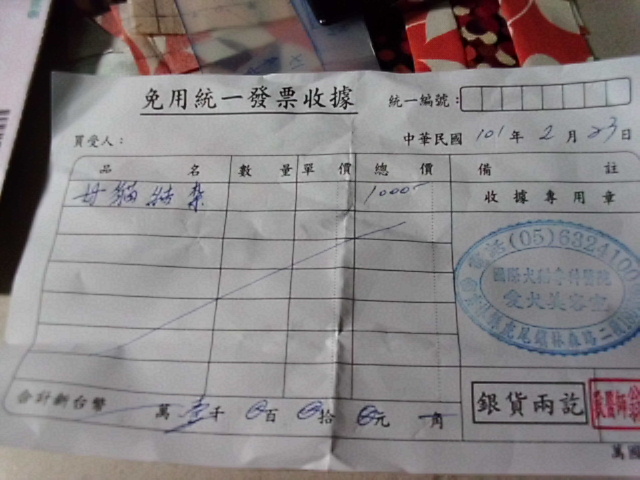 免用統一發票收據
統一編號：
買受人：
中華民國 101 年 2 月 23 日
品名 數量 單價 總價 備註
母貓結紮 1000- 收據專用章
電話(05)632410
國際犬貓專科醫院
愛犬美容室
虎尾鎮林森路二段
合計新台幣 萬 壹 千 0 百 0 拾 0 元 角
銀貨兩訖
獸醫師翁
萬國